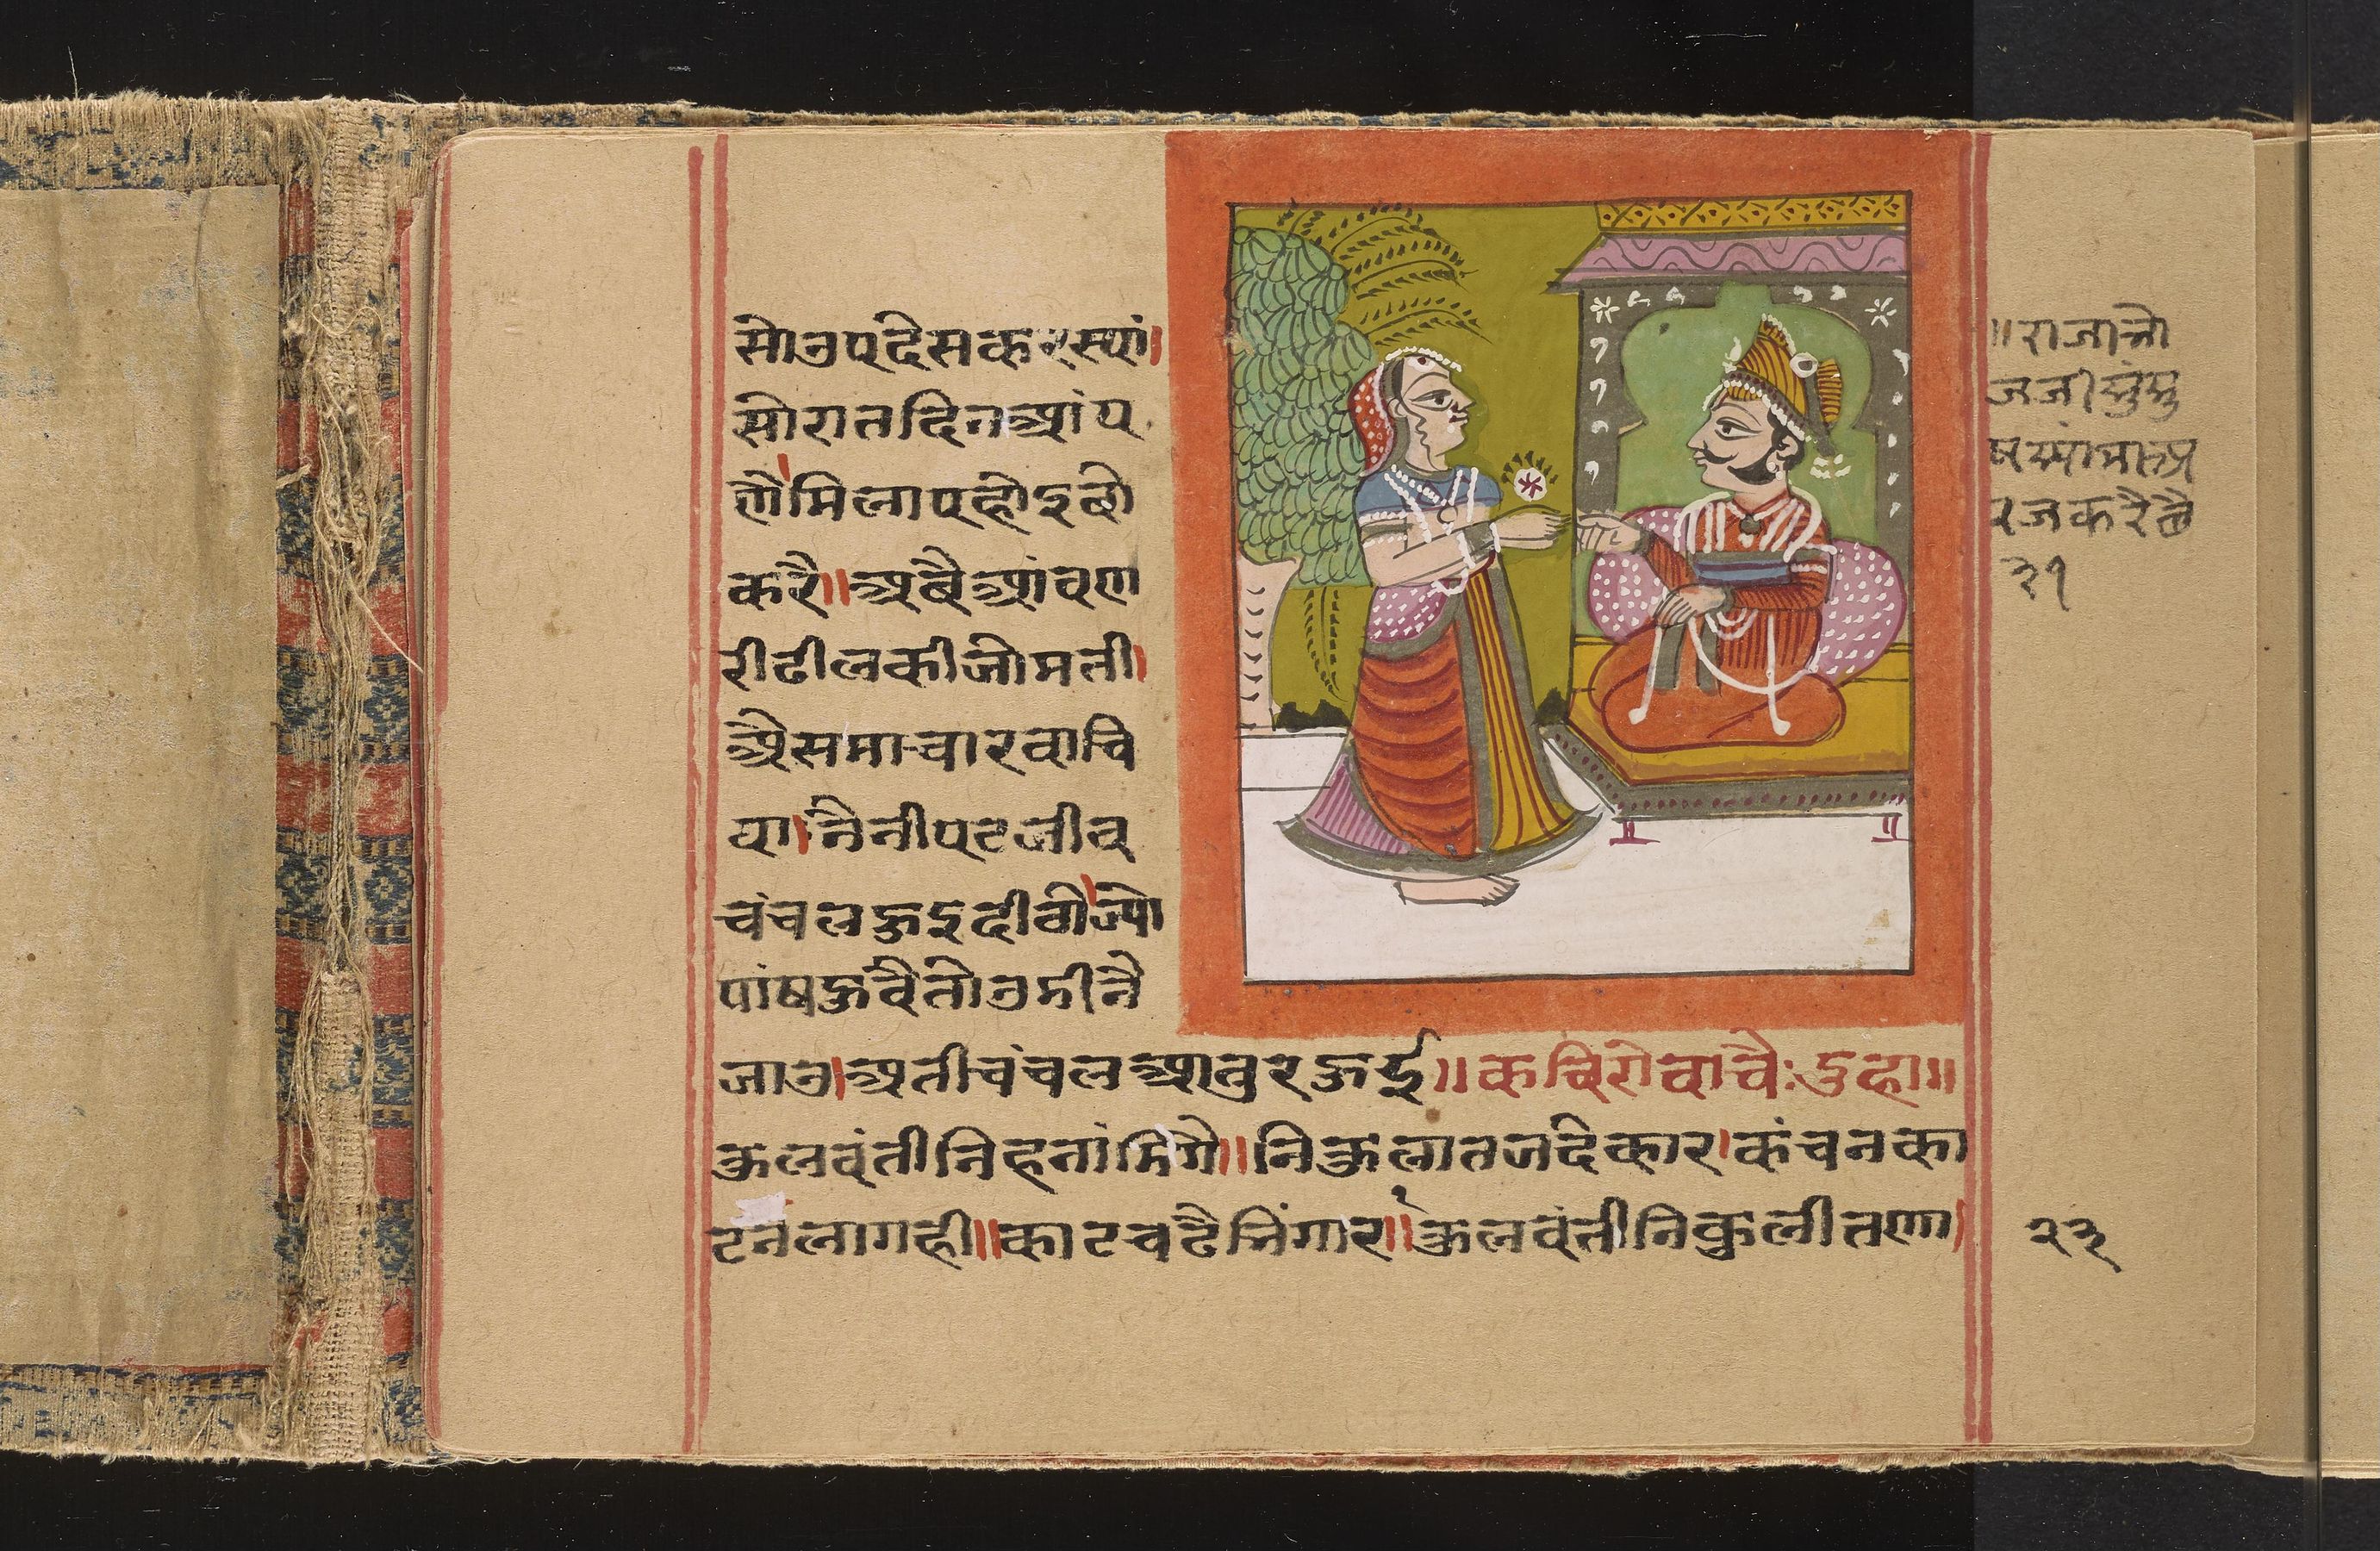 सोउपदेसकरस्यां।
सोरातदिनआंप
णौमिलापहोइबो
करै॥अबैआंवण
रीढीलकीजोमती।
ऐसमाचारवाचि
या।नैनीपटजीव
चंचलहुइदीवीज्यो
पांषहुवैतोउमीनै
जाउ।अतीचंचलआतुरहुई॥कविरोवाचै:दुहा॥
कुलवंतीनिहनांमिगै॥निकुलातजदेकार।कंचनका
टनलागही॥काटचढैनिंगार॥१कुलवंतीनिकुलीतणा।
॥राजाभो
जजीसुंमु
षस्यांमाअ
रजकरैछै
३१
२३